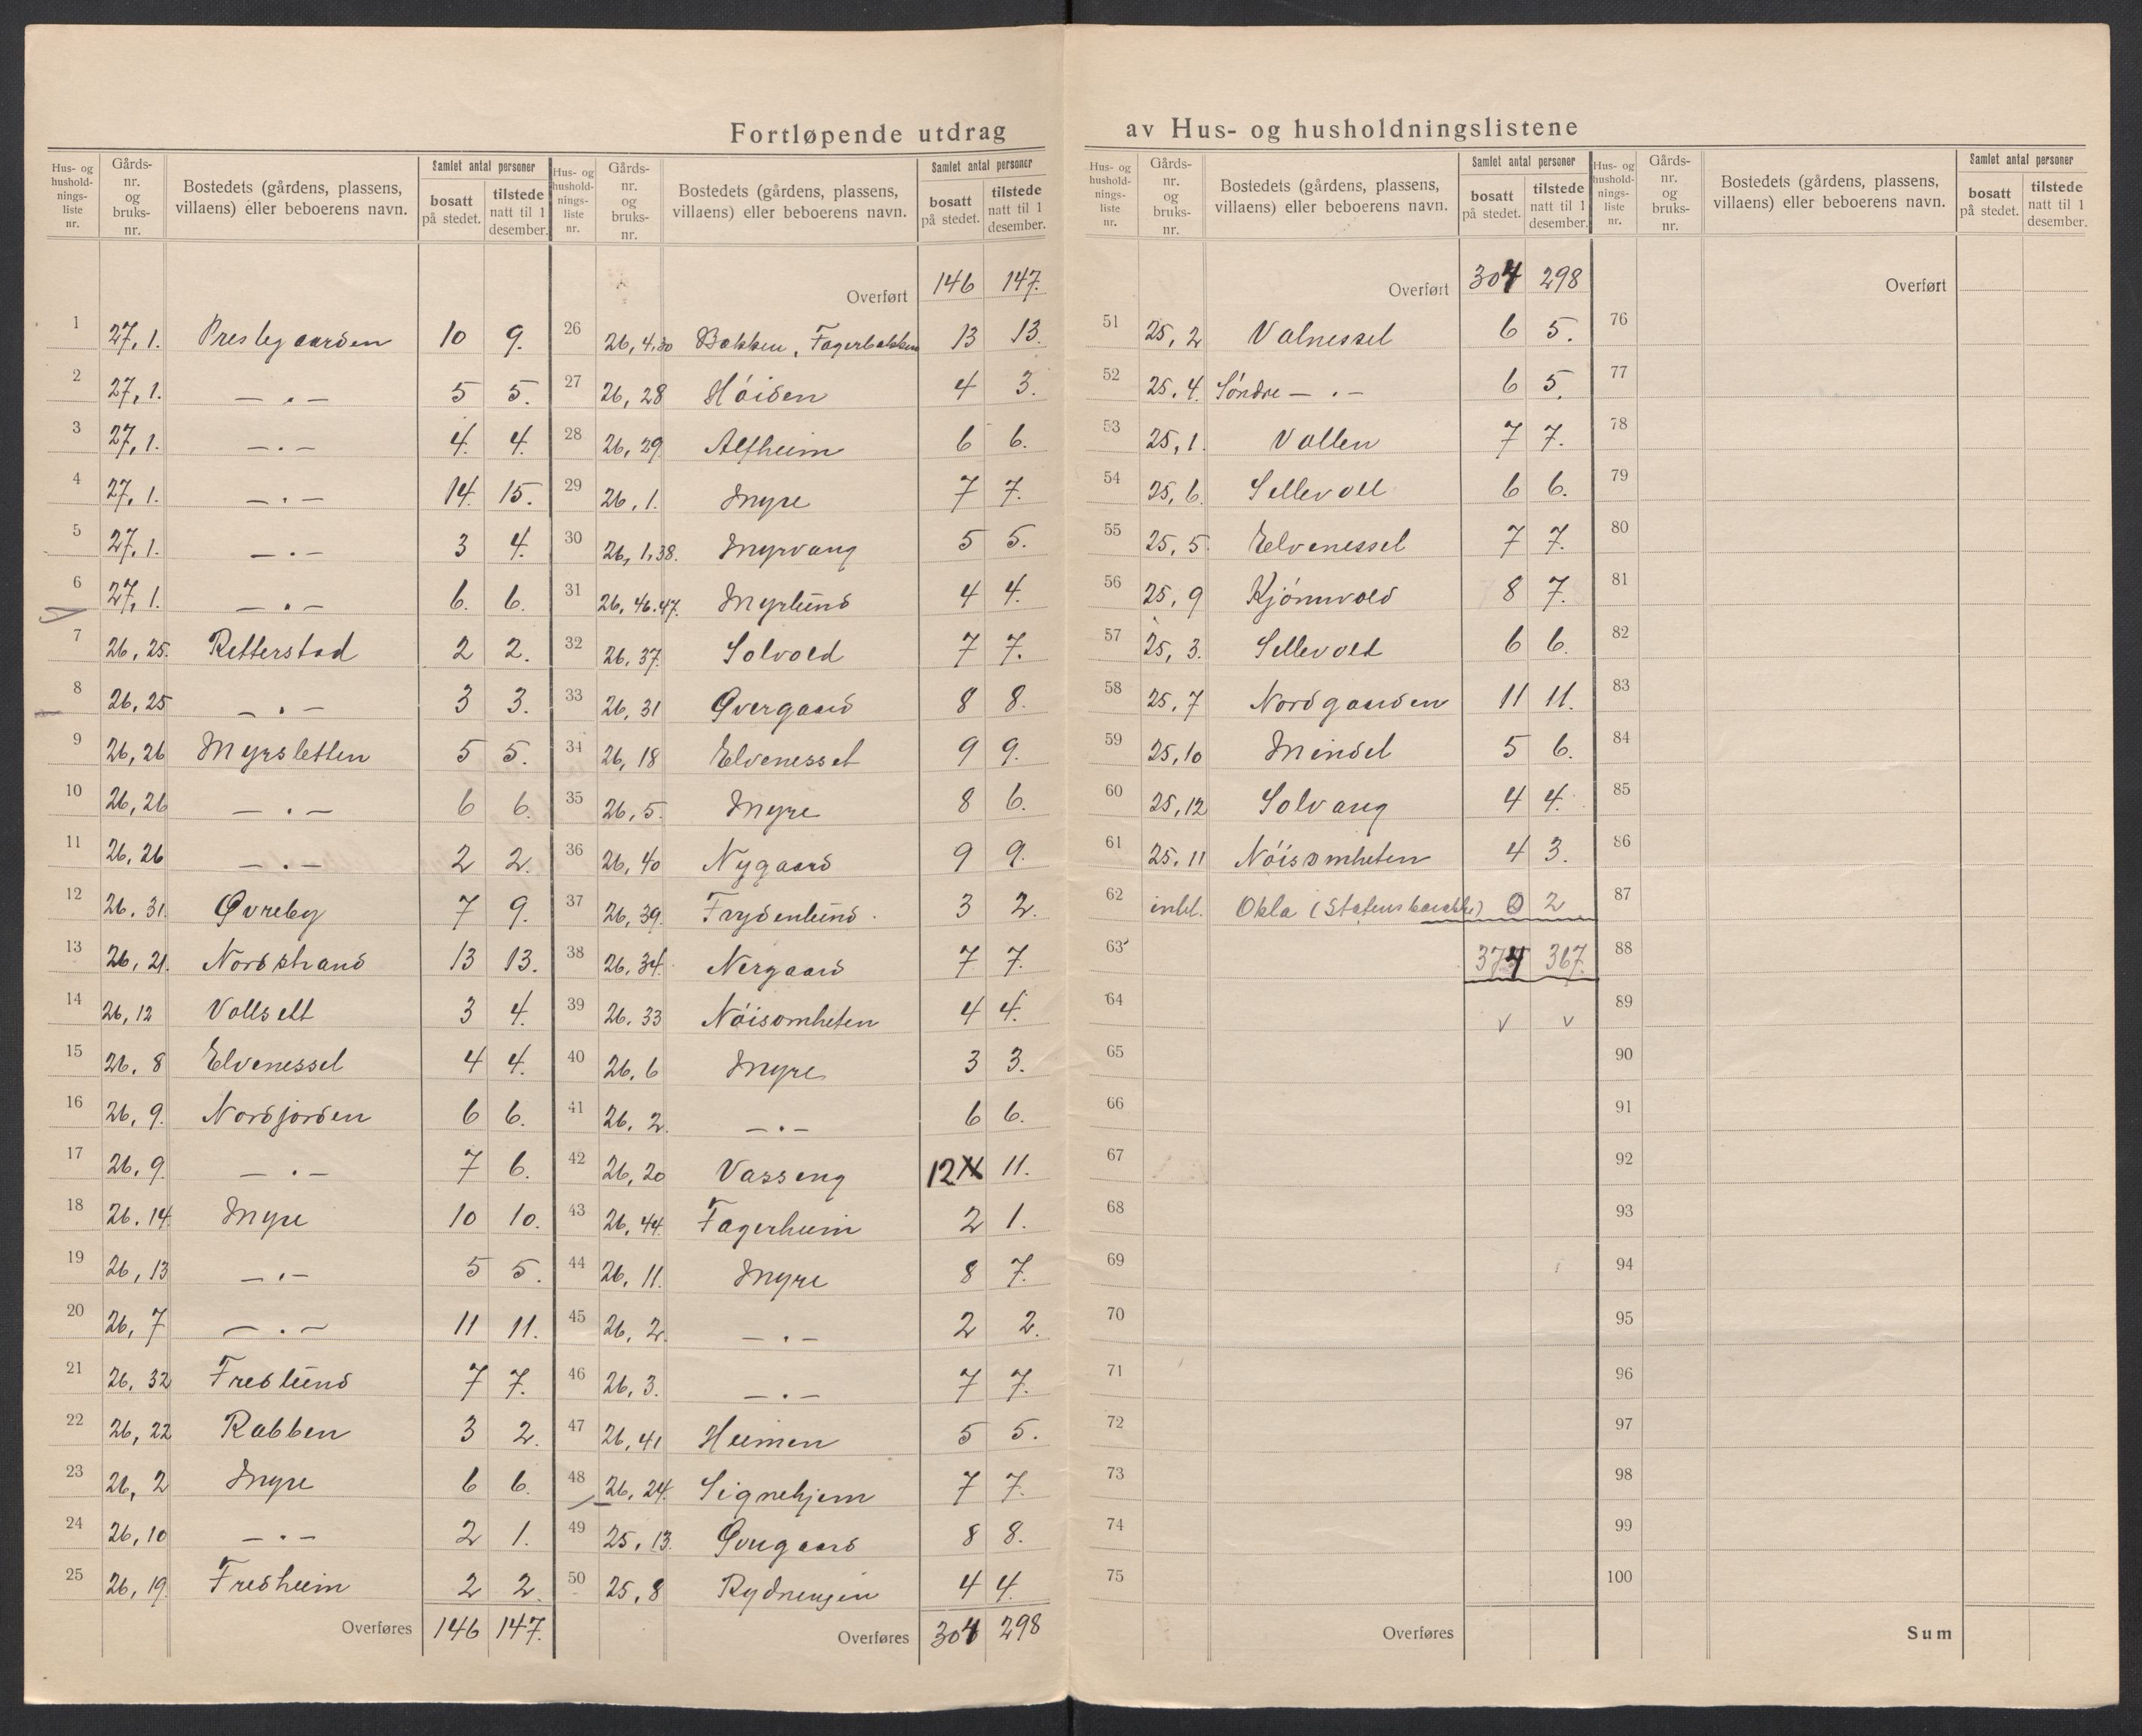 Fortløpende utdrag av Hus- og husholdningslistene
Hus- og hushold-nings-liste nr. | Gårds-nr. og bruks-nr. | Bostedets (gårdens, plassens, villaens) eller beboerens navn. | Samlet antal personer | bosatt på stedet. | tilstede natt til 1 desember.
1 27,1. Prestegaarden 10 9.
2 27,1. — . — 5 5.
3 27,1. — . — 4. 4.
4 27,1. — . — 14. 15.
5 27,1. — . — 3 4.
6 27,1. — . — 6. 6.
7 26,25. Retterstad 2 2.
8 26,25 — . — 3 3.
9 26,26 Myrsletten 5 5.
10 26,26 — . — 6 6.
11 26,26 — . — 2 2.
12 26.31. Øvreby 7 9.
13 26,21. Nordstrand 13 13.
14 26,12 Vollsett 3 4.
15 26.8 Elvenesset 4 4.
16 26,9. Nordjorden 6 6.
17 26,9. — . — 7 6.
18 26.14. Myre 10 10.
19 26,13 — . — 5 5.
20 26,7 — . — 11 11.
21 26,32 Fredlund 7 7.
22 26,22 Rabben 3 2.
23 26,2 Myre 6 6.
24 26,10 — . — 2 1.
25 26,19. Fredheim 2 2.
Overføres 146 147.
Hus- og hushold-nings-liste nr. | Gårds-nr. og bruks-nr. | Bostedets (gårdens, plassens, villaens) eller beboerens navn. | Samlet antal personer | bosatt på stedet. | tilstede natt til 1 desember.
Overført 146 147.
26 26,4.30 Bakken, Fagerbakken 13 13.
27 26,28 Høiden 4 3.
28 26,29. Alfheim 6 6.
29 26,1. Myre 7 7.
30 26,1,38. Myrvang 5 5.
31 26,46.47. Myrlund 4 4.
32 26.37. Solvold 7 7.
33 26,31 Øvergaard 8 8.
34 26,18 Elvenesset 9 9.
35 26,5. Myre 8 6.
36 26,40 Nygaard 9 9.
37 26,39. Frydenlund. 3 2.
38 26,34. Nergaard 7 7.
39 26.33 Nøisomheten 4 4.
40 26.6 Myre 3 3.
41 26,2. — . — 6 6.
42 26,20 Vasseng 12 11.
43 26,44. Fagerheim 2 1.
44 26,11. Myre 8 7.
45 26,2. — . — 2 2.
46 26,3. — . — 7 7.
47 26,41 Heimen 5 5.
48 26,24. Signehjem 7 7.
49 25,13. Øvergaard 8 8.
50 25,8 4 4.
Overføres 304 298
Hus- og hushold-nings-liste nr. | Gårds-nr. og bruks-nr. | Bostedets (gårdens, plassens, villaens) eller beboerens navn. | Samlet antal personer | bosatt på stedet. | tilstede natt til 1 desember.
Overført 304 298
51 25,2 Valnesset 6 5.
52 25,4. Søndre — . — 6 5.
53 25,1. Vollen 7 7.
54 25,6. Sellevoll 6 6.
55 25,5. Elvenesset 7 7.
56 25,9 Kjønnvold 8 7.
57 25,3. Sellevold 6 6.
58 25,7 Nordgaarden 11 11.
59 25,10 Mindel 5 6.
60 25,12 Solvang 4 4.
61 25.11 Nøisomheten 4 3.
62 Okla (Statens barakke) 0 2
63 374 367.
64 v v
65
66
67
68
69
70
71
72
73
74
75
Overføres
Hus- og hushold-nings-liste nr. | Gårds-nr. og bruks-nr. | Bostedets (gårdens, plassens, villaens) eller beboerens navn. | Samlet antal personer | bosatt på stedet. | tilstede natt til 1 desember.
Overført
76
77
78
79
80
81
82
83
84
85
86
87
88
89
90
91
92
93
94
95
96
97
98
99
100
Sum